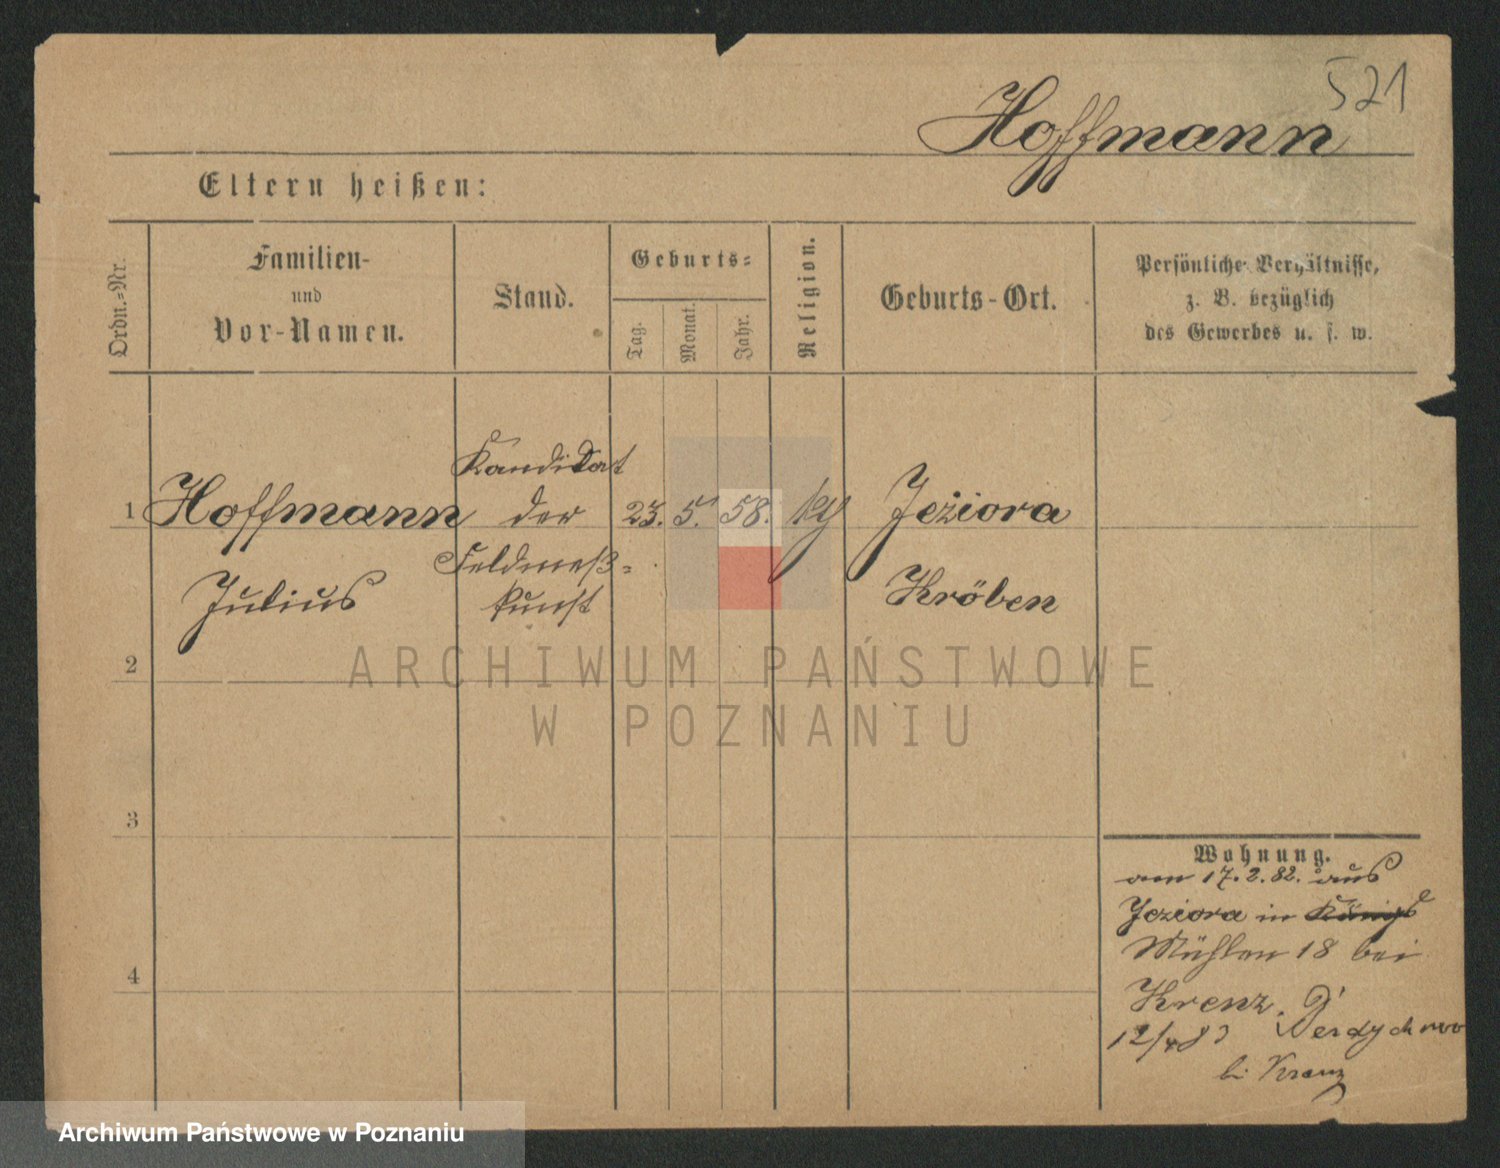 521
Hoffmann
Eltern heißen:
Ordn.=Nr.
Familien-
und
Vor-Namen.
Stand.
Geburts=
Tag.
Monat.
Jahr.
Religion.
Geburts-Ort.
Persönliche Verhältnisse,
z. B. bezüglich
des Gewerbes u. s. w.
1 Hoffmann
Julius
Kandidat
der
Feldmeß=
kunst
23. 5. 58.
Jeziora
Kröben
2
3
4
Wohnung.
am 17.2.82. aus
Jeziora in Königs
Mühlen 18 bei
Krenz.
12/4 83
bei Kranz
ARCHIWUM PAŃSTWOWE
W POZNANIU
Archiwum Państwowe w Poznaniu